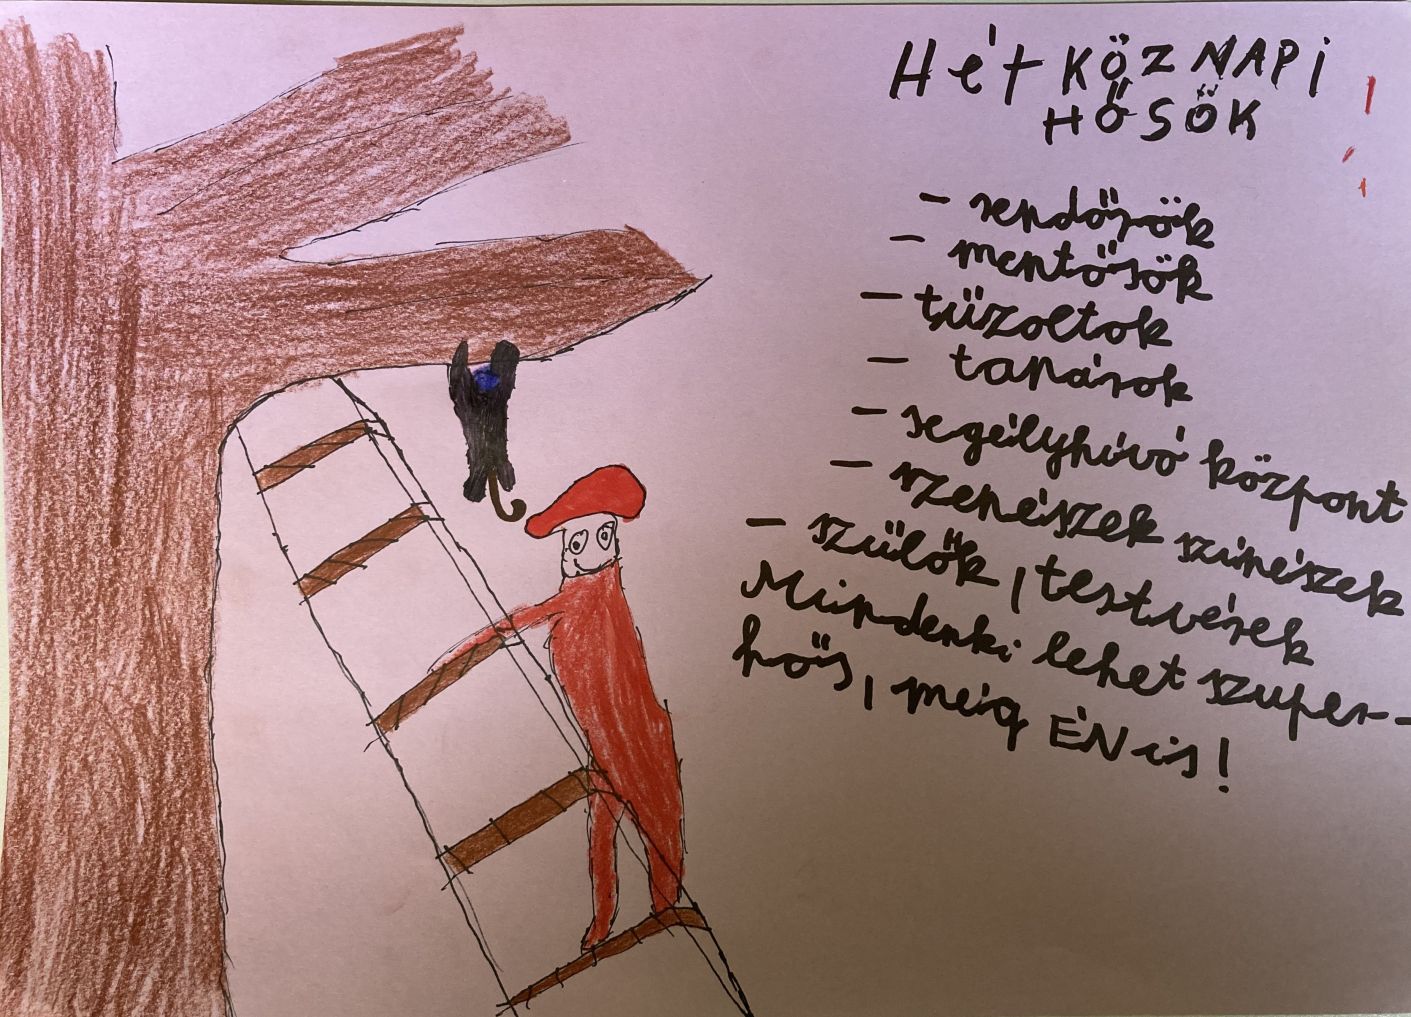 HétKÖZNAPi
HŐSÖK
- rendőrök
- mentősök
- tűzoltok
- tanárok
- segélyhívó központ
- szenészek színészek
- szülők, testvérek
Mindenki lehet szuper-
hős, még ÉN is!